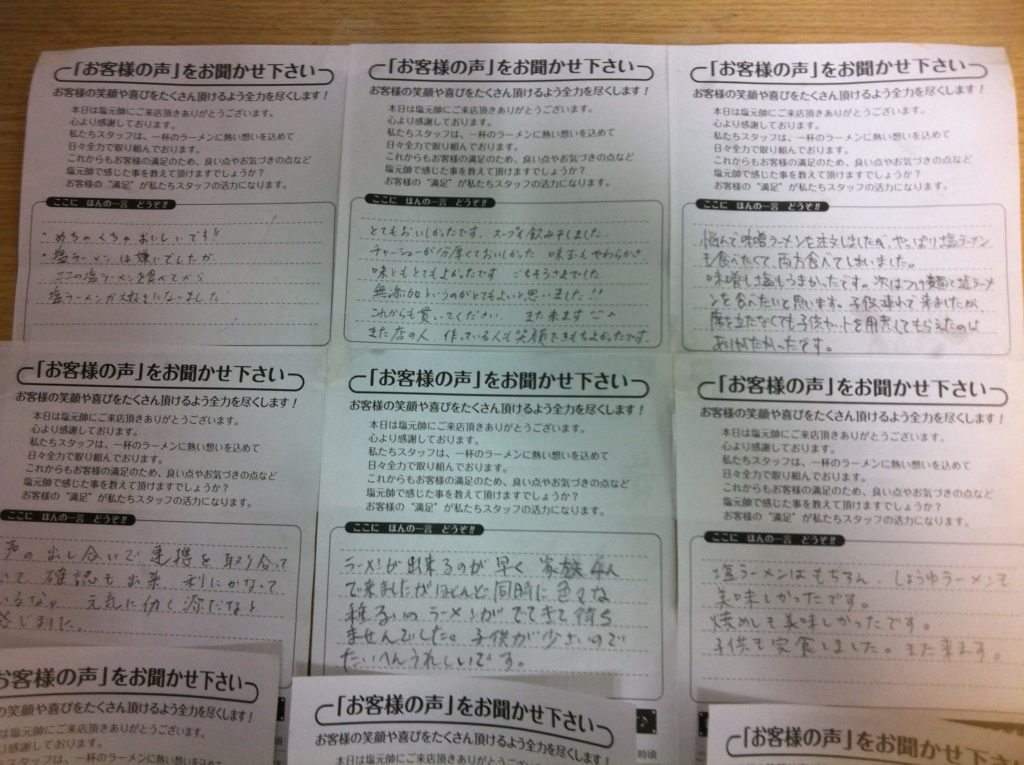 「お客様の声」をお聞かせ下さい
お客様の笑顔や喜びをたくさん頂けるよう全力を尽くします！
本日は塩元帥にご来店頂きありがとうございます。
心より感謝しております。
私たちスタッフは、一杯のラーメンに熱い想いを込めて
日々全力で取り組んでおります。
これからもお客様の満足のため、良い点やお気づきの点など
塩元帥で感じた事を教えて頂けますでしょうか？
お客様の“満足”が私たちスタッフの活力になります。
ここに ほんの一言 どうぞ!!
・めちゃくちゃおいしいです!!
・塩ラーメンは嫌いでしたが
ここの塩ラーメンを食べてから
塩ラーメンが大好きになりました
「お客様の声」をお聞かせ下さい
お客様の笑顔や喜びをたくさん頂けるよう全力を尽くします！
本日は塩元帥にご来店頂きありがとうございます。
心より感謝しております。
私たちスタッフは、一杯のラーメンに熱い想いを込めて
日々全力で取り組んでおります。
これからもお客様の満足のため、良い点やお気づきの点など
塩元帥で感じた事を教えて頂けますでしょうか？
お客様の“満足”が私たちスタッフの活力になります。
ここに ほんの一言 どうぞ!!
とてもおいしかったです。スープも飲み干しました
チャーシューが分厚くておいしかった 味玉もやわらかさ
味ともとてもよかったです ごちそうさまでした
無添加というのがとてもよいと思いました!!
これからも貫いてください また来ます
また店の人、作っている人も笑顔できもちよかったです。
「お客様の声」をお聞かせ下さい
お客様の笑顔や喜びをたくさん頂けるよう全力を尽くします！
本日は塩元帥にご来店頂きありがとうございます。
心より感謝しております。
私たちスタッフは、一杯のラーメンに熱い想いを込めて
日々全力で取り組んでおります。
これからもお客様の満足のため、良い点やお気づきの点など
塩元帥で感じた事を教えて頂けますでしょうか？
お客様の“満足”が私たちスタッフの活力になります。
ここに ほんの一言 どうぞ!!
悩んで味噌ラーメンを注文しましたが、やっぱり塩ラーメン
も食べたくて、両方食べてしまいました。
味噌も塩もうまかったです。次はつけ麺と塩ラーメ
ンを食べたいと思います。子供連れで来ましたが、
席を立たなくても子供セットを用意してもらえたのは
ありがたかったです。
「お客様の声」をお聞かせ下さい
お客様の笑顔や喜びをたくさん頂けるよう全力を尽くします！
本日は塩元帥にご来店頂きありがとうございます。
心より感謝しております。
私たちスタッフは、一杯のラーメンに熱い想いを込めて
日々全力で取り組んでおります。
これからもお客様の満足のため、良い点やお気づきの点など
塩元帥で感じた事を教えて頂けますでしょうか？
お客様の“満足”が私たちスタッフの活力になります。
ここに ほんの一言 どうぞ!!
声の出し合いで連携を取り合って
いて 確認も出来、利にかなって
いるなァ 元気に働く源だなと
感じました。
「お客様の声」をお聞かせ下さい
お客様の笑顔や喜びをたくさん頂けるよう全力を尽くします！
本日は塩元帥にご来店頂きありがとうございます。
心より感謝しております。
私たちスタッフは、一杯のラーメンに熱い想いを込めて
日々全力で取り組んでおります。
これからもお客様の満足のため、良い点やお気づきの点など
塩元帥で感じた事を教えて頂けますでしょうか？
お客様の“満足”が私たちスタッフの活力になります。
ここに ほんの一言 どうぞ!!
ラーメンが出来るのが早く 家族4人
で来ましたがほとんど同時に色々な
種るいのラーメンがでてきて待ち
ませんでした。子供が少さいので
たいへんうれしいです。
「お客様の声」をお聞かせ下さい
お客様の笑顔や喜びをたくさん頂けるよう全力を尽くします！
本日は塩元帥にご来店頂きありがとうございます。
心より感謝しております。
私たちスタッフは、一杯のラーメンに熱い想いを込めて
日々全力で取り組んでおります。
これからもお客様の満足のため、良い点やお気づきの点など
塩元帥で感じた事を教えて頂けますでしょうか？
お客様の“満足”が私たちスタッフの活力になります。
ここに ほんの一言 どうぞ!!
塩ラーメンはもちろん、しょうゆラーメンも
美味しかったです。
焼めしも美味しかったです。
子供も完食しました。また来ます。
お客様の声」をお聞かせ下さい
の笑顔や喜びをたくさん頂けるよう全力を尽くします！
本日は塩元帥にご来店頂きありがとうございます。
心より感謝しております。
私たちスタッフは、一杯のラーメンに熱い想いを込めて
「お客様の声」をお聞かせ下さい
お客様の笑顔や喜びをたくさん頂けるよう全力を尽くします！
本日は塩元帥にご来店頂きありがとうございます。
時頃
「お客様の声」をお聞かせ下さい